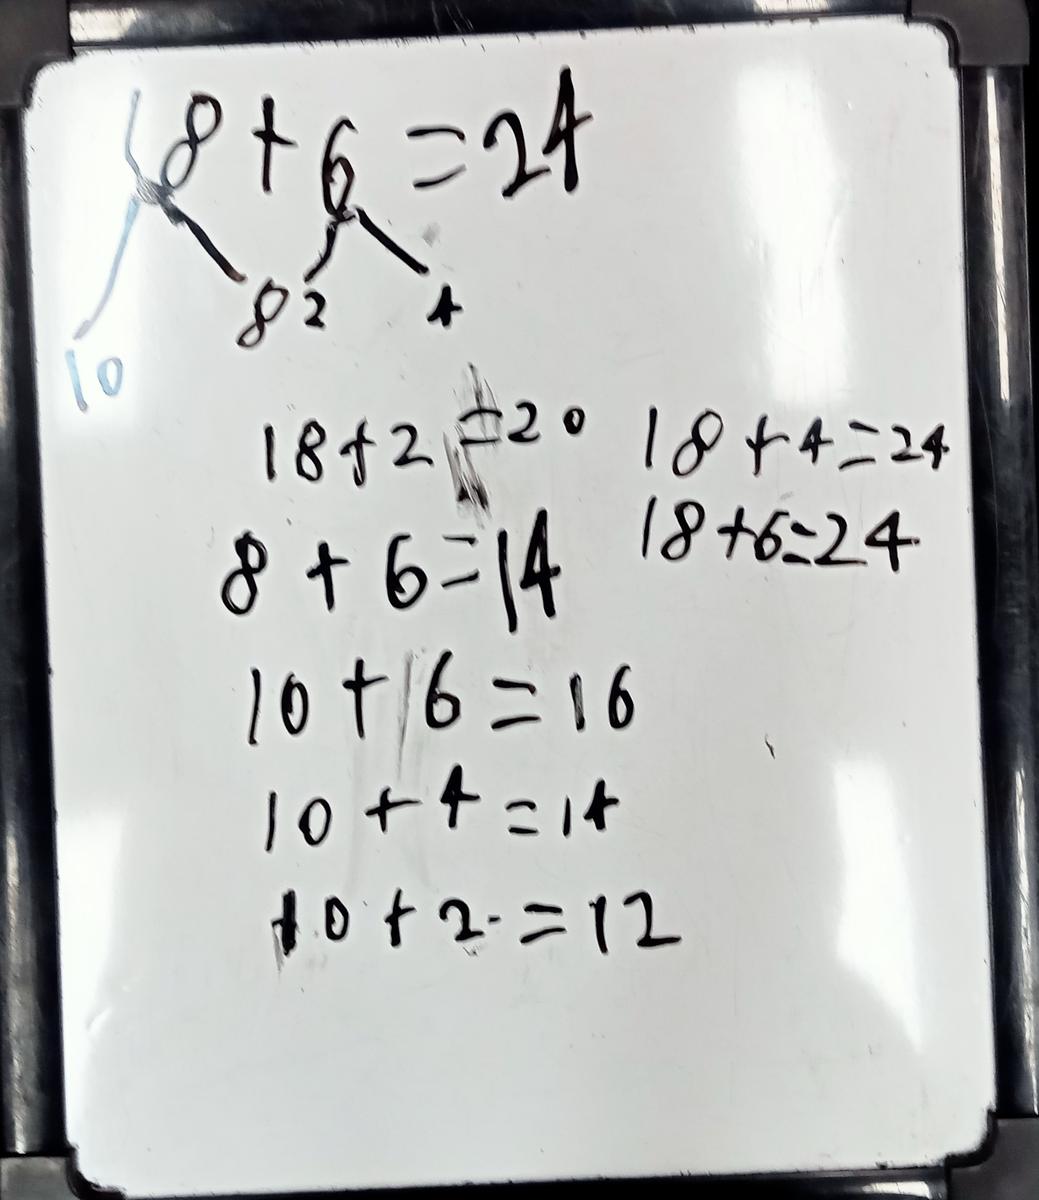 18 + 6 = 24
8 2 4
10
18 + 2 = 20
18 + 4 = 24
18 + 6 = 24
8 + 6 = 14
10 + 6 = 16
10 + 4 = 14
10 + 2 = 12